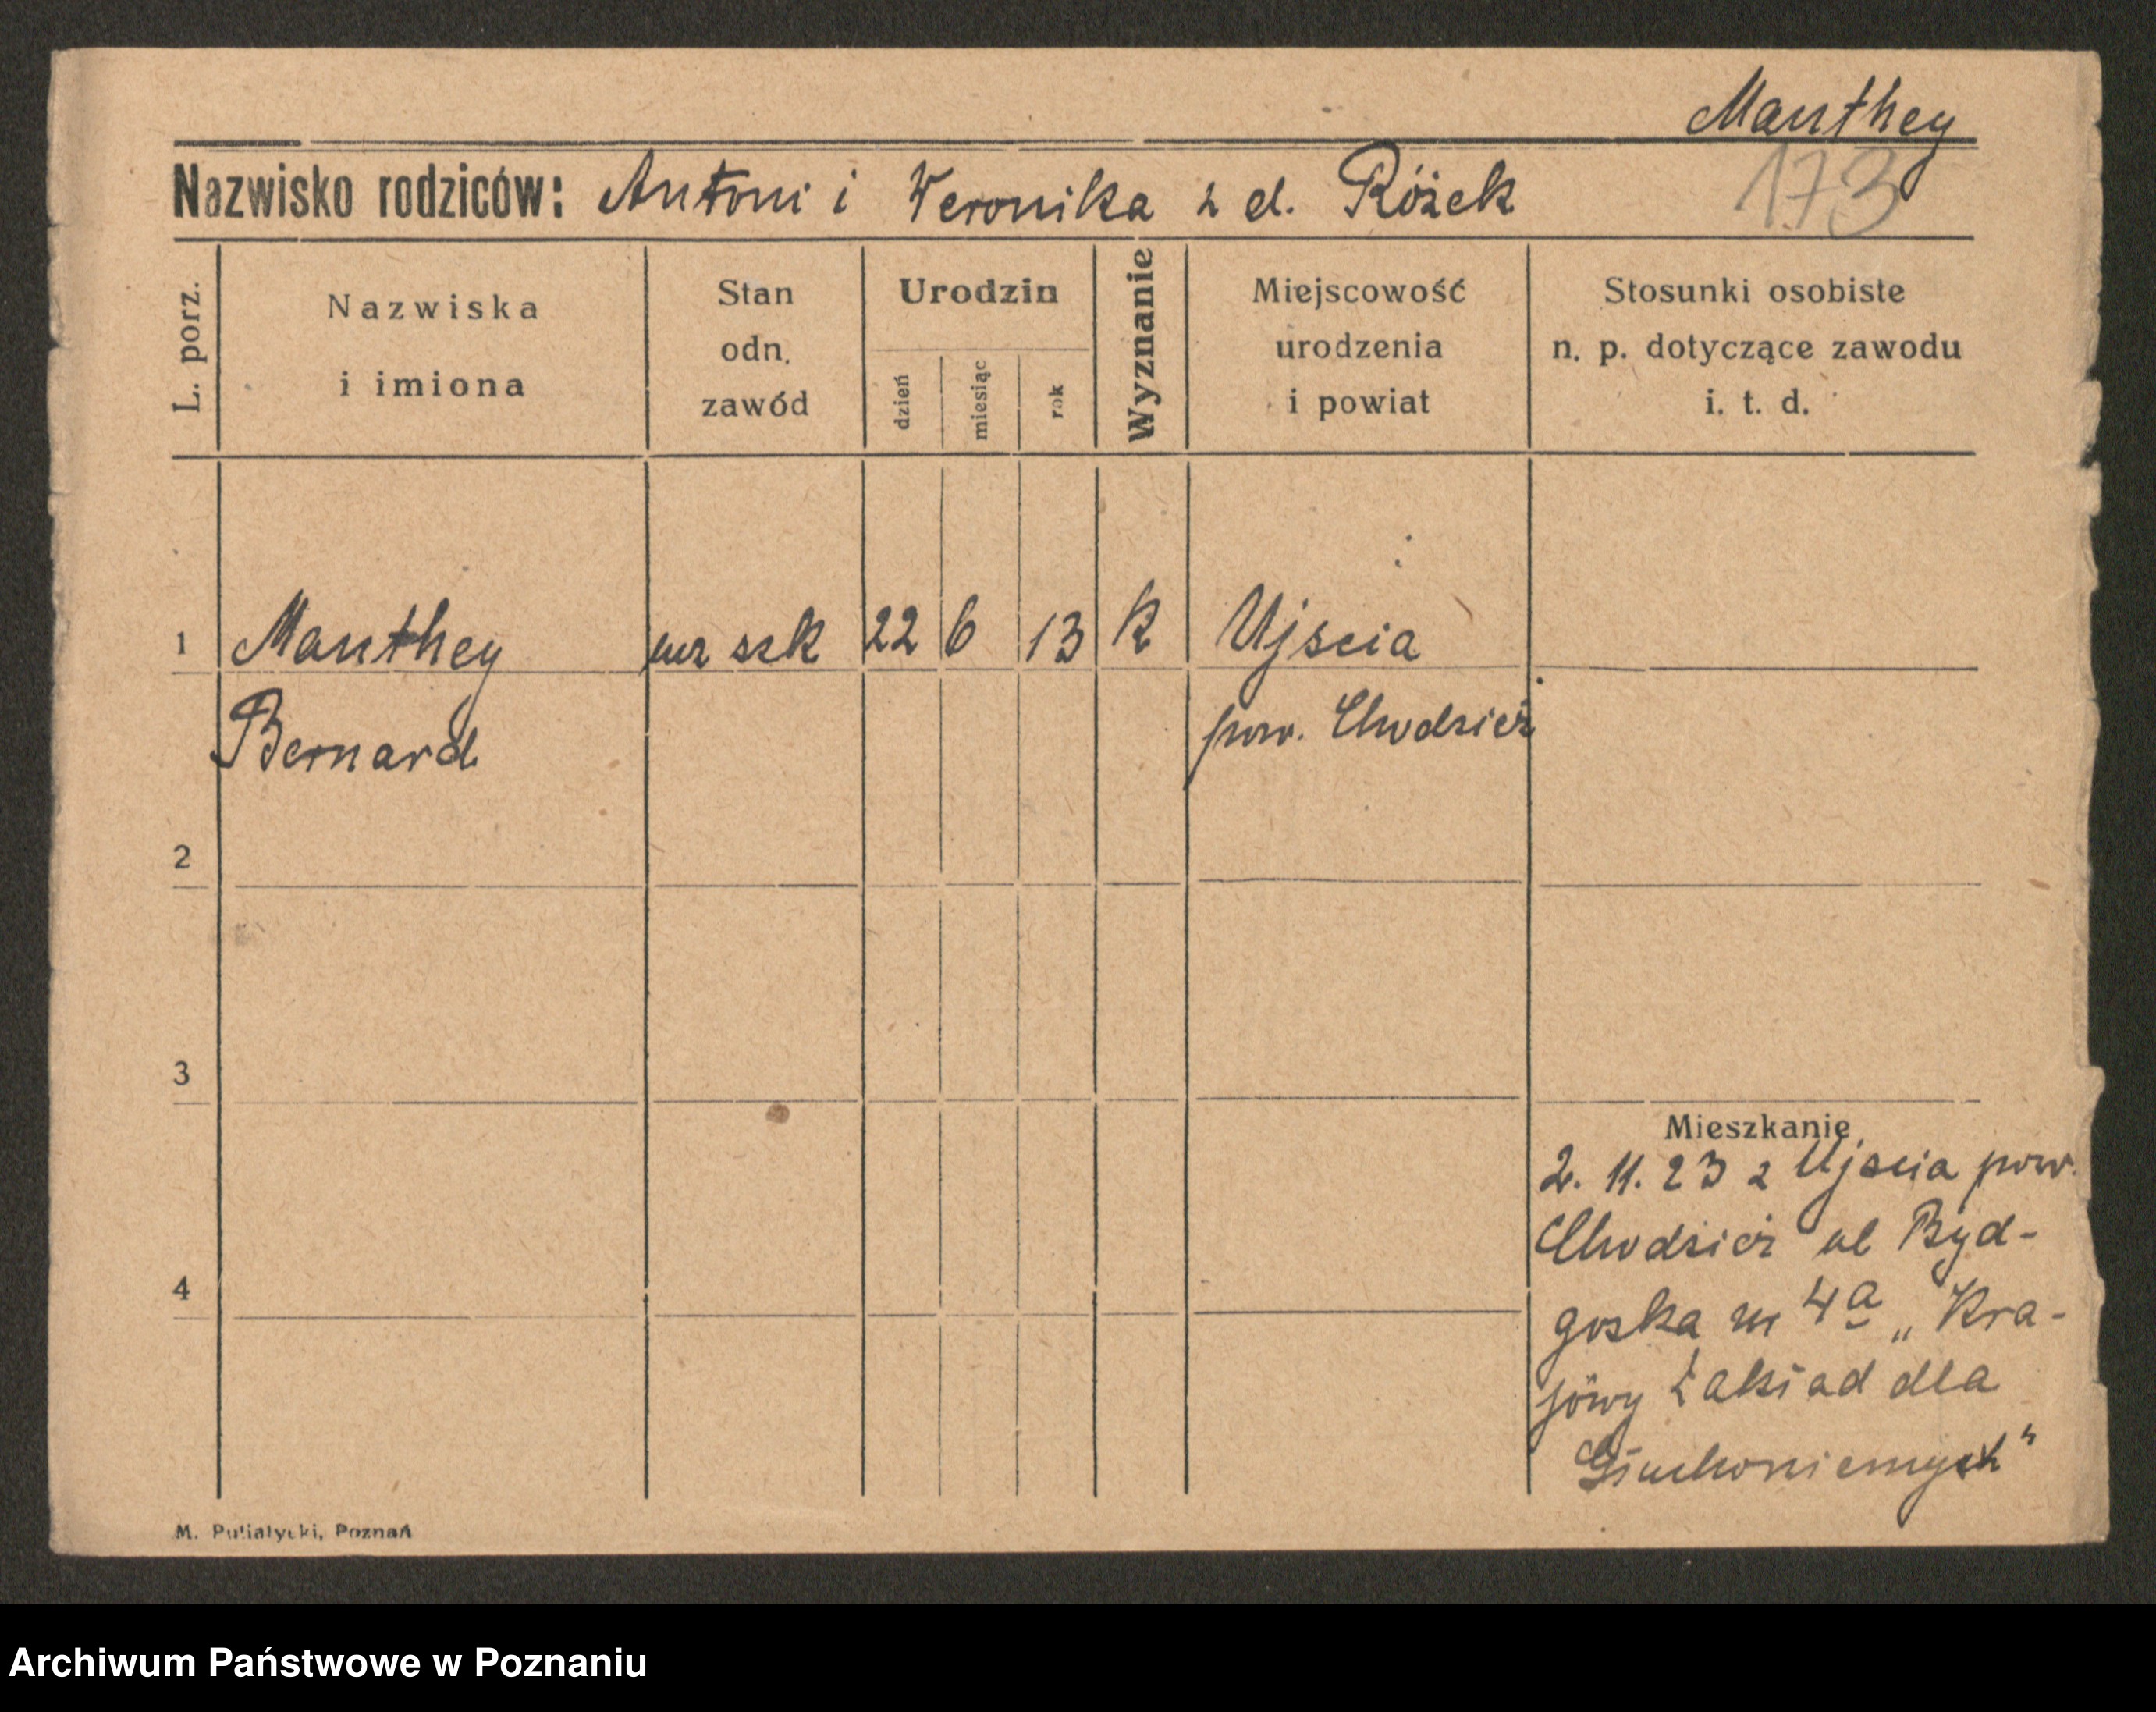 Manthey
173
Nazwisko rodziców: Antoni i Weronika z d. Różek
L. porz.
Nazwiska
i imiona
Stan
odn.
zawód
Urodzin
dzień
miesiąc
rok
Wyznanie
Miejscowość
urodzenia
i powiat
Stosunki osobiste
n. p. dotyczące zawodu
i. t. d.
1 Manthey ucz szk 22 6 13 K Ujscia
Bernard pow. Chodzież
2
3
4
Mieszkanie
2. 11. 23 z Ujscia pow.
Chodzież ul Byd-
goska nr 4a „Kra-
jowy Zakład dla
Głuchoniemych"
M. Putiatycki, Poznań
Archiwum Państwowe w Poznaniu